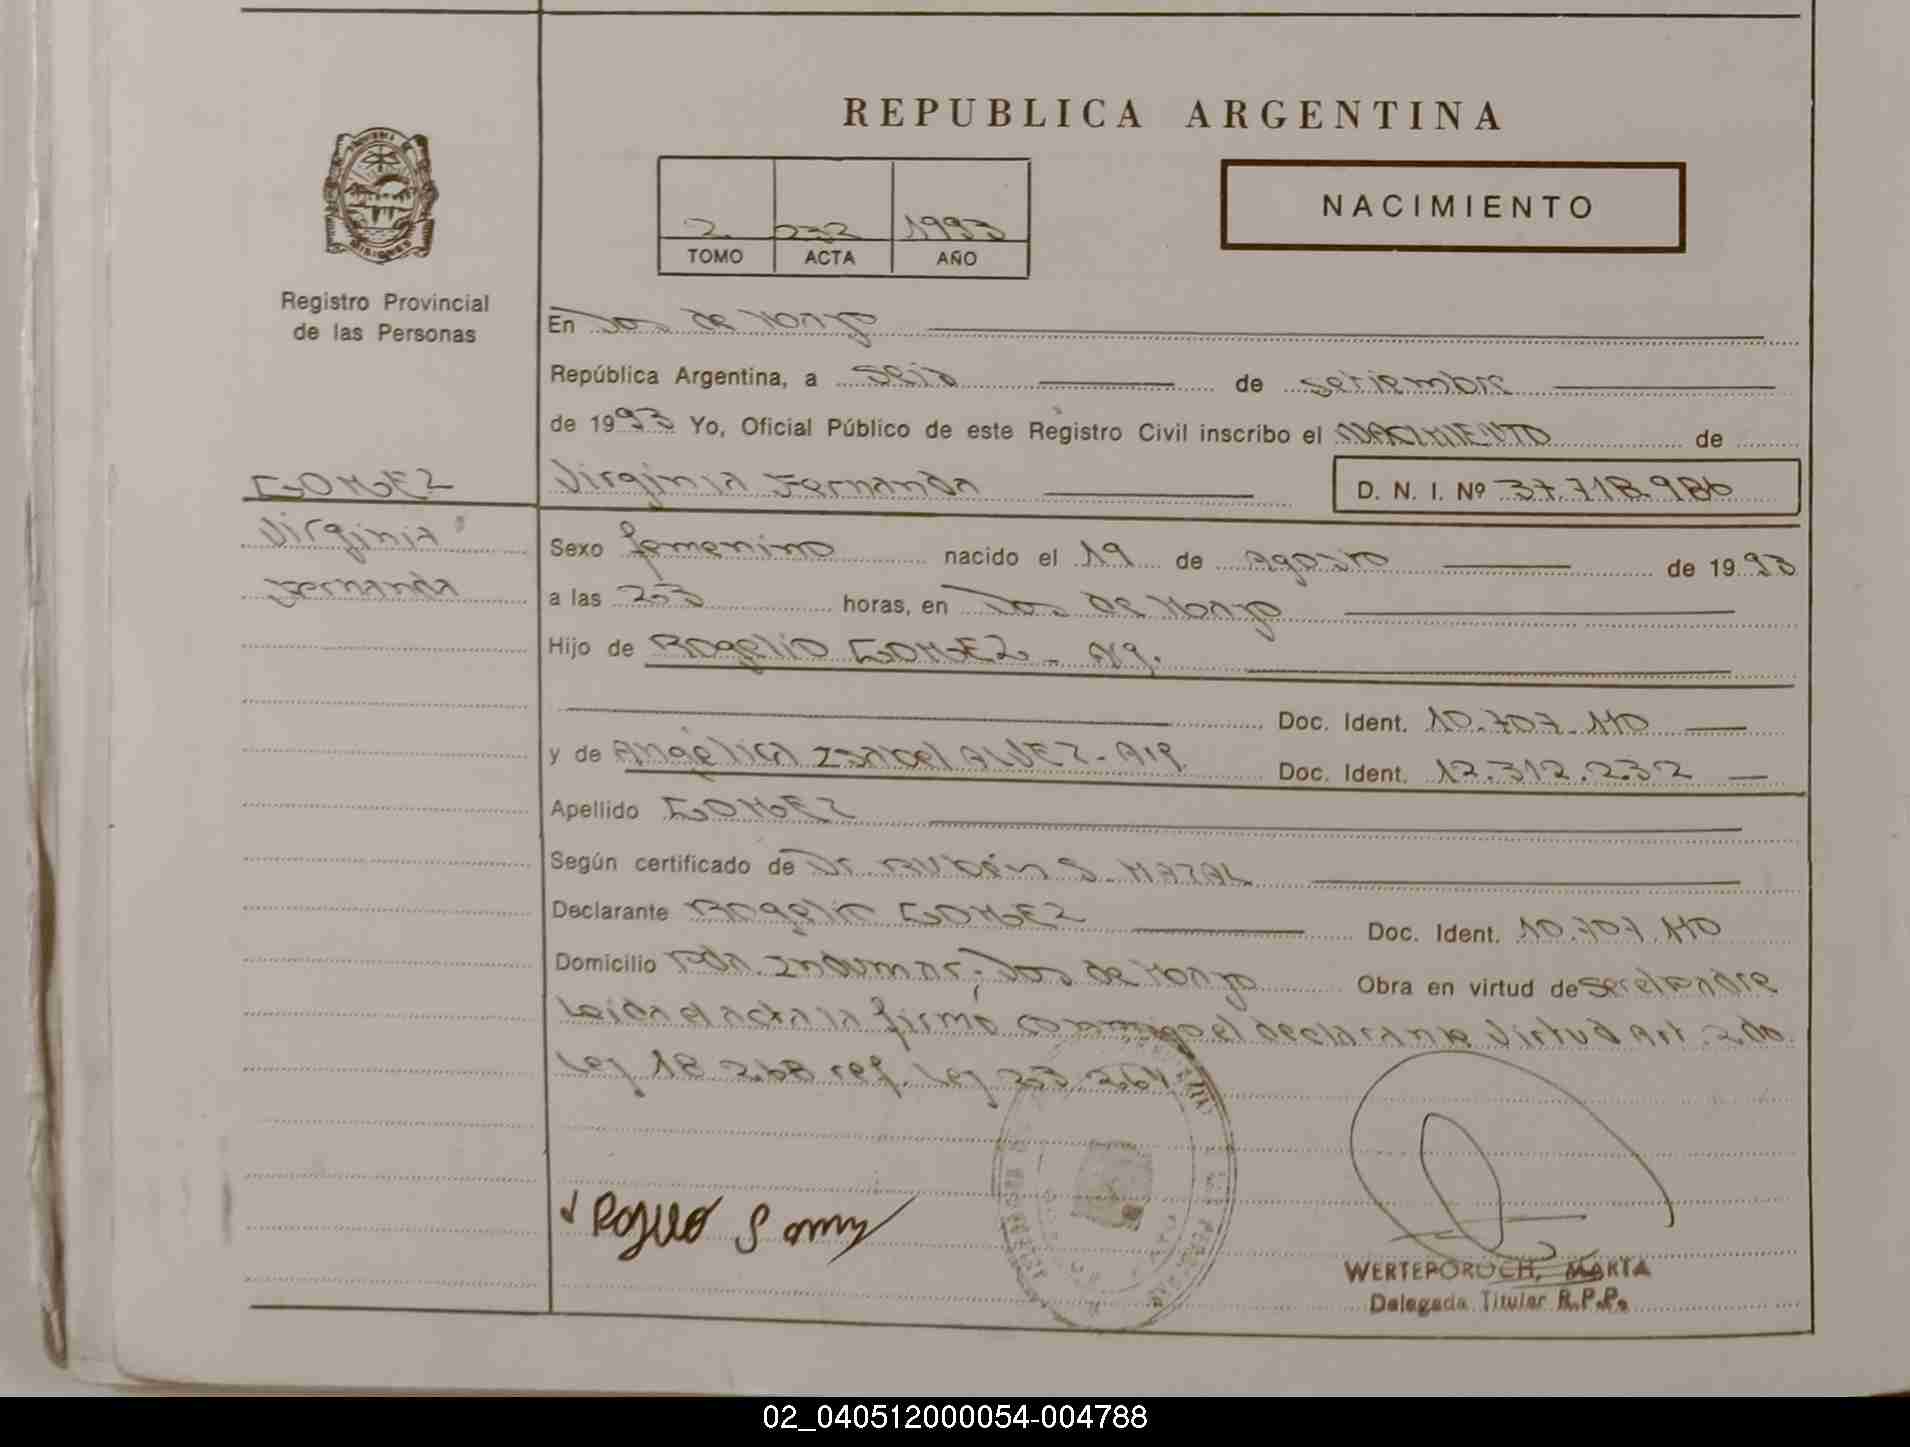 REPUBLICA ARGENTINA
NACIMIENTO
2 232 1993
TOMO ACTA AÑO
MISIONES
Registro Provincial
de las Personas
En Dos de Mayo
República Argentina, a seis de setiembre
de 1993 Yo, Oficial Público de este Registro Civil inscribo el NACIMIENTO de
GOMEZ
Virginia Fernanda
D. N. I. Nº 37.718.986
Virginia
Fernanda
Sexo femenino nacido el 19 de Agosto de 1993
a las horas, en Dos de Mayo
Hijo de Rogelio GOMEZ - Arg.
Doc. Ident. 10.707.110
y de Angélica Isabel ALVEZ - Arg. Doc. Ident. 12.312.232
Apellido GOMEZ
Según certificado de Dr Rubén S.
Declarante Rogelio GOMEZ Doc. Ident. 10.707.110
Domicilio Dos de Mayo Obra en virtud de ser el padre
Leida el acta la firmó conmigo el declarante virtud Art. 2do.
Ley 18.268 ref. Ley 23.264
WERTEPOROCH, MARTA
Delegada Titular R.P.P.
02_040512000054-004788